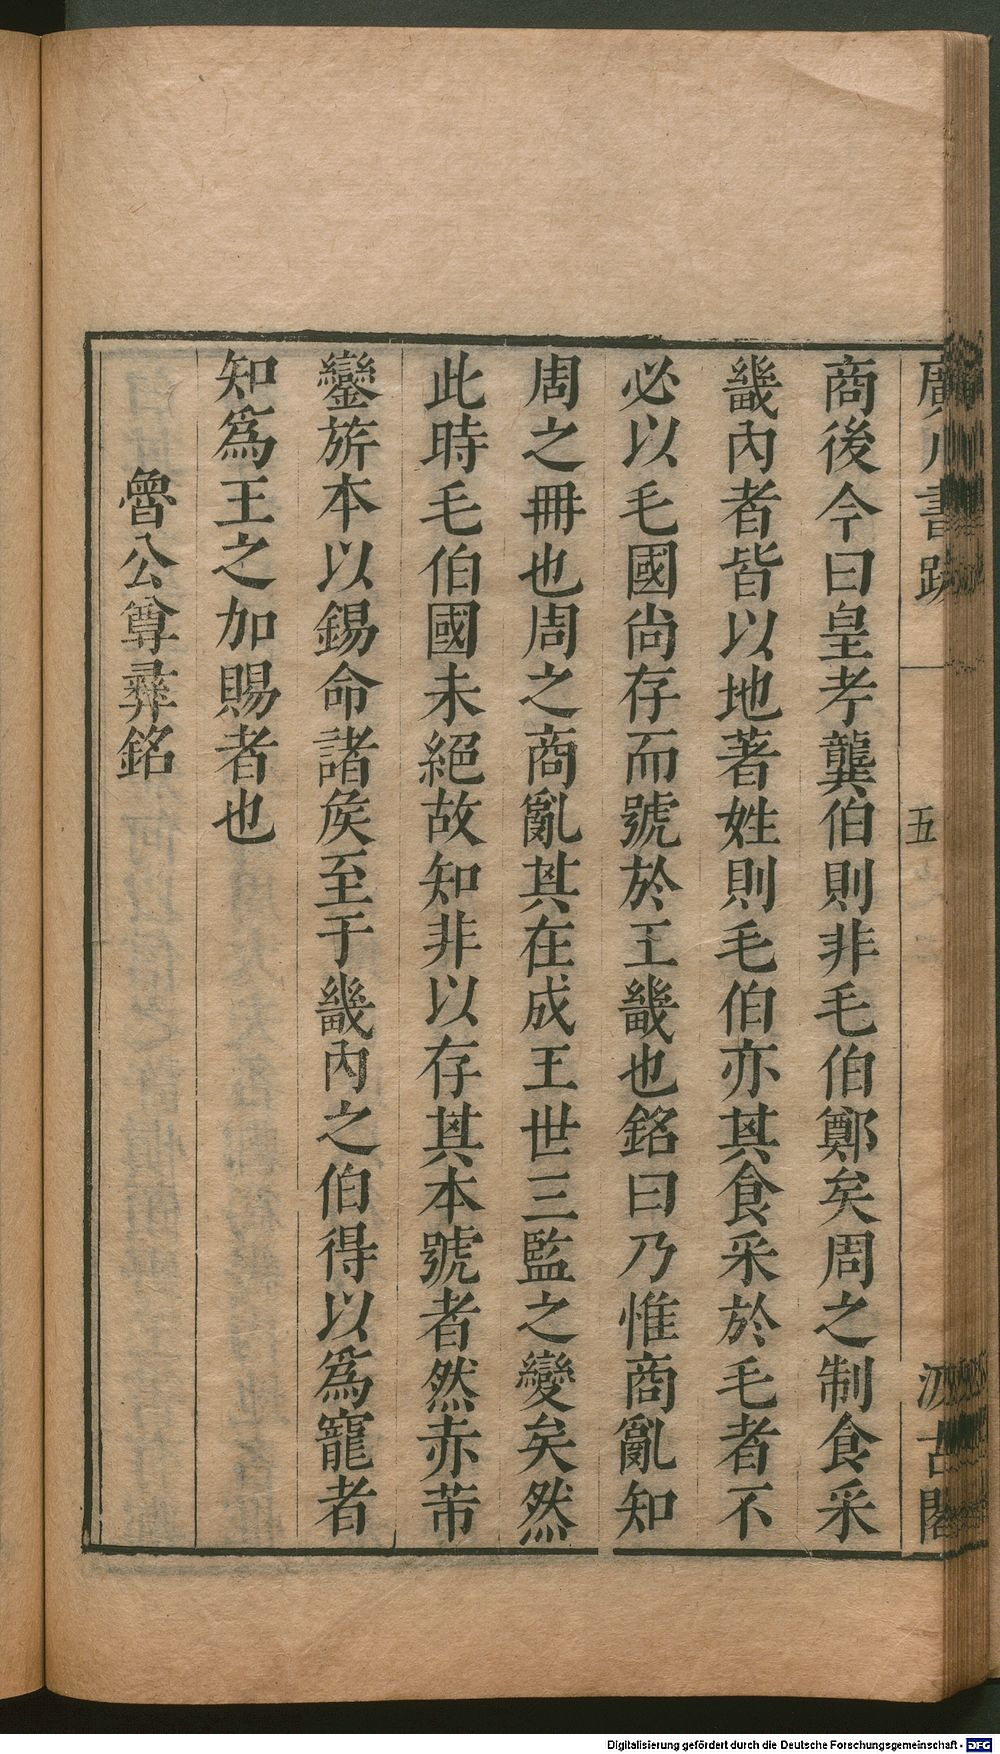 廣川書跋
五
汲古閣
商後今曰皇孝龔伯則非毛伯鄭矣周之制食采
畿內者皆以地著姓則毛伯亦其食采於毛者不
必以毛國尚存而號於王畿也銘曰乃惟商亂知
周之冊也周之商亂其在成王世三監之變矣然
此時毛伯國未絕故知非以存其本號者然赤芾
鑾旂本以錫命諸矦至于畿內之伯得以爲寵者
知爲王之加賜者也
魯公尊彝銘
Digitalisierung gefördert durch die Deutsche Forschungsgemeinschaft - DFG